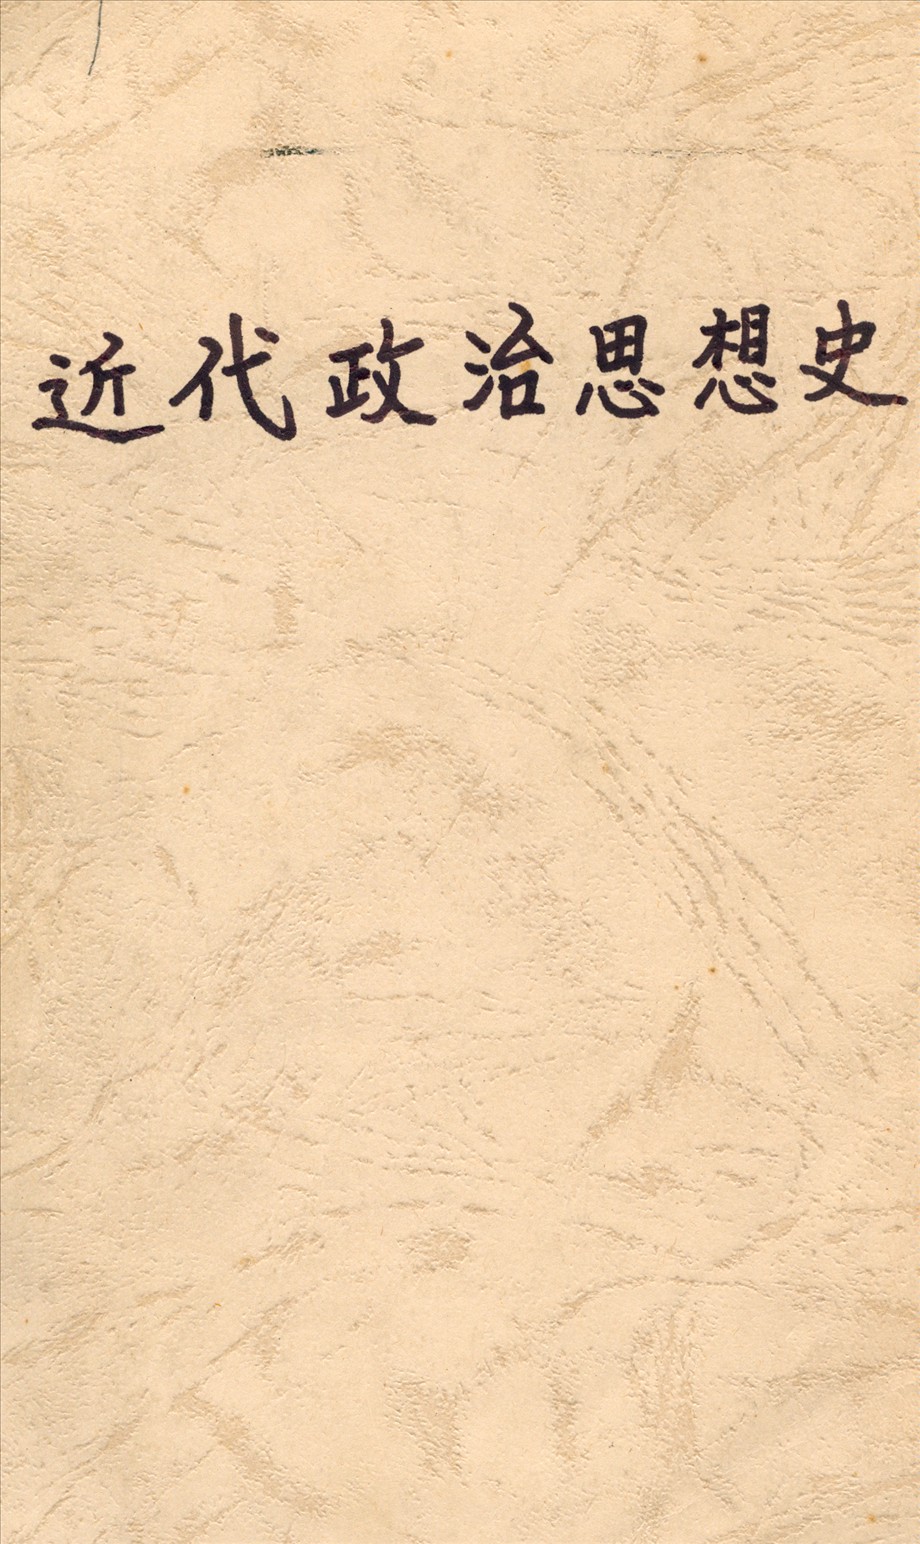 近代政治思想史